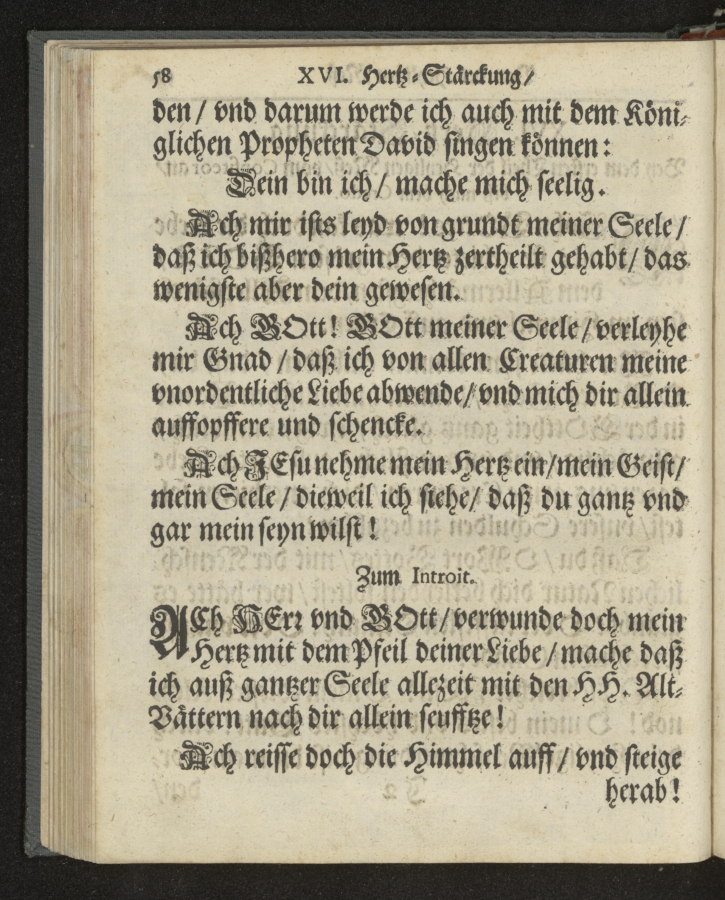 58 XVI. Hertz-Stärckung/
den/ vnd darum werde ich auch mit dem Köni-
glichen Propheten David singen können:
Dein bin ich/ mache mich seelig.
Ach mir ists leyd von grundt meiner Seele/
daß ich bißhero mein Hertz zertheilt gehabt/ das
wenigste aber dein gewesen.
Ach GOtt! GOtt meiner Seele/ verleyhe
mir Gnad/ daß ich von allen Creaturen meine
vnordentliche Liebe abwende/ vnd mich dir allein
auffopffere und schencke.
Ach JEsu nehme mein Hertz ein/ mein Geist/
mein Seele/ dieweil ich siehe/ daß du gantz vnd
gar mein seyn wilst!
Zum Introit.
ACh HErr vnd GOtt/ verwunde doch mein
Hertz mit dem Pfeil deiner Liebe/ mache daß
ich auß gantzer Seele allezeit mit den HH. Alt-
Vättern nach dir allein seufftze!
Ach reisse doch die Himmel auff/ vnd steige
herab!